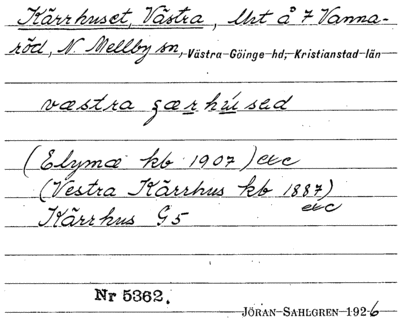 Kärrhuset, Västra, lht å 7 Vanna-
röd, N. Mellby sn, Västra Göinge hd, Kristianstad län
væstra gærhúsəd
(Elymæ kb 1907) etc
(Vestra Kärrhus kb 1887)
etc
Kärrhus G5
Nr 5362.
JÖRAN SAHLGREN 1926